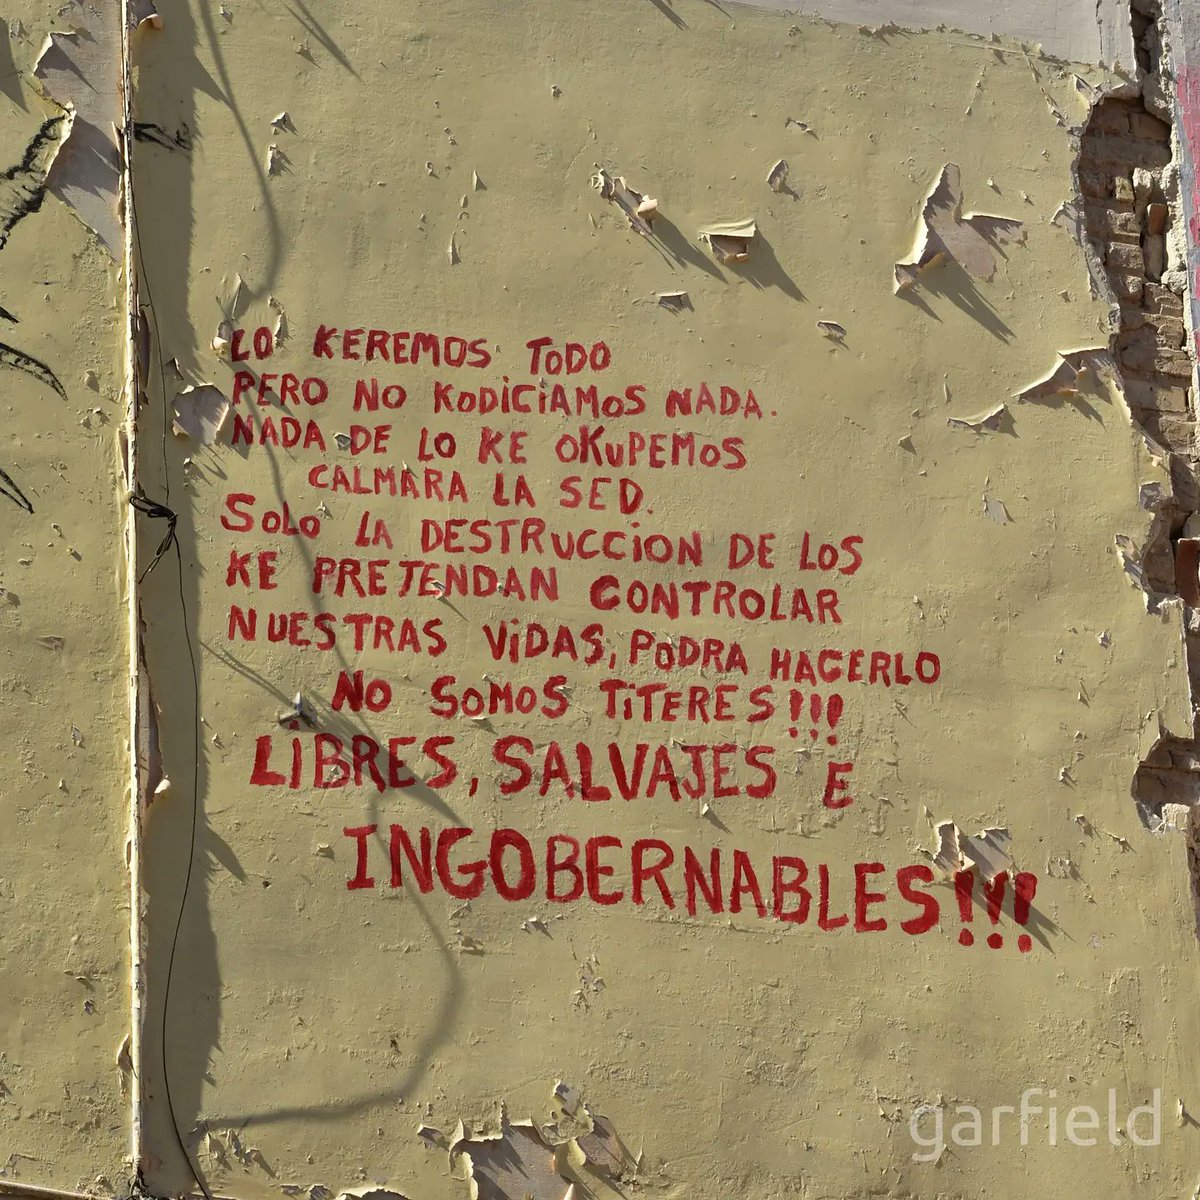 LO KEREMOS TODO
PERO NO KODICIAMOS NADA.
NADA DE LO KE OKUPEMOS
CALMARA LA SED.
SOLO LA DESTRUCCION DE LOS
KE PRETENDAN CONTROLAR
NUESTRAS VIDAS, PODRA HACERLO
NO SOMOS TITERES!!!
LIBRES, SALVAJES E
INGOBERNABLES!!!
garfield